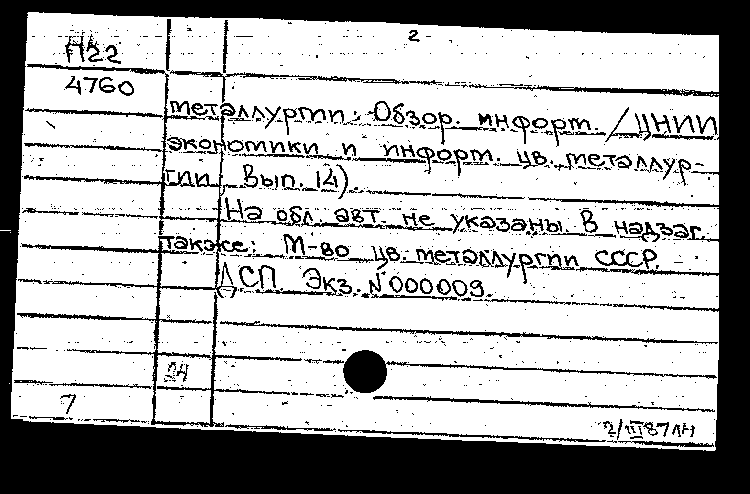 2
П22
4760
металлургии: Обзор. информ. / ЦНИИ
экономики и информ. цв. металлур-
гии; Вып. 14).
На обл. авт. не указаны. В надзаг.
также: М-во цв. металлургии СССР.
ДСП. Экз. №000009.
24
7
2/III 87 лн